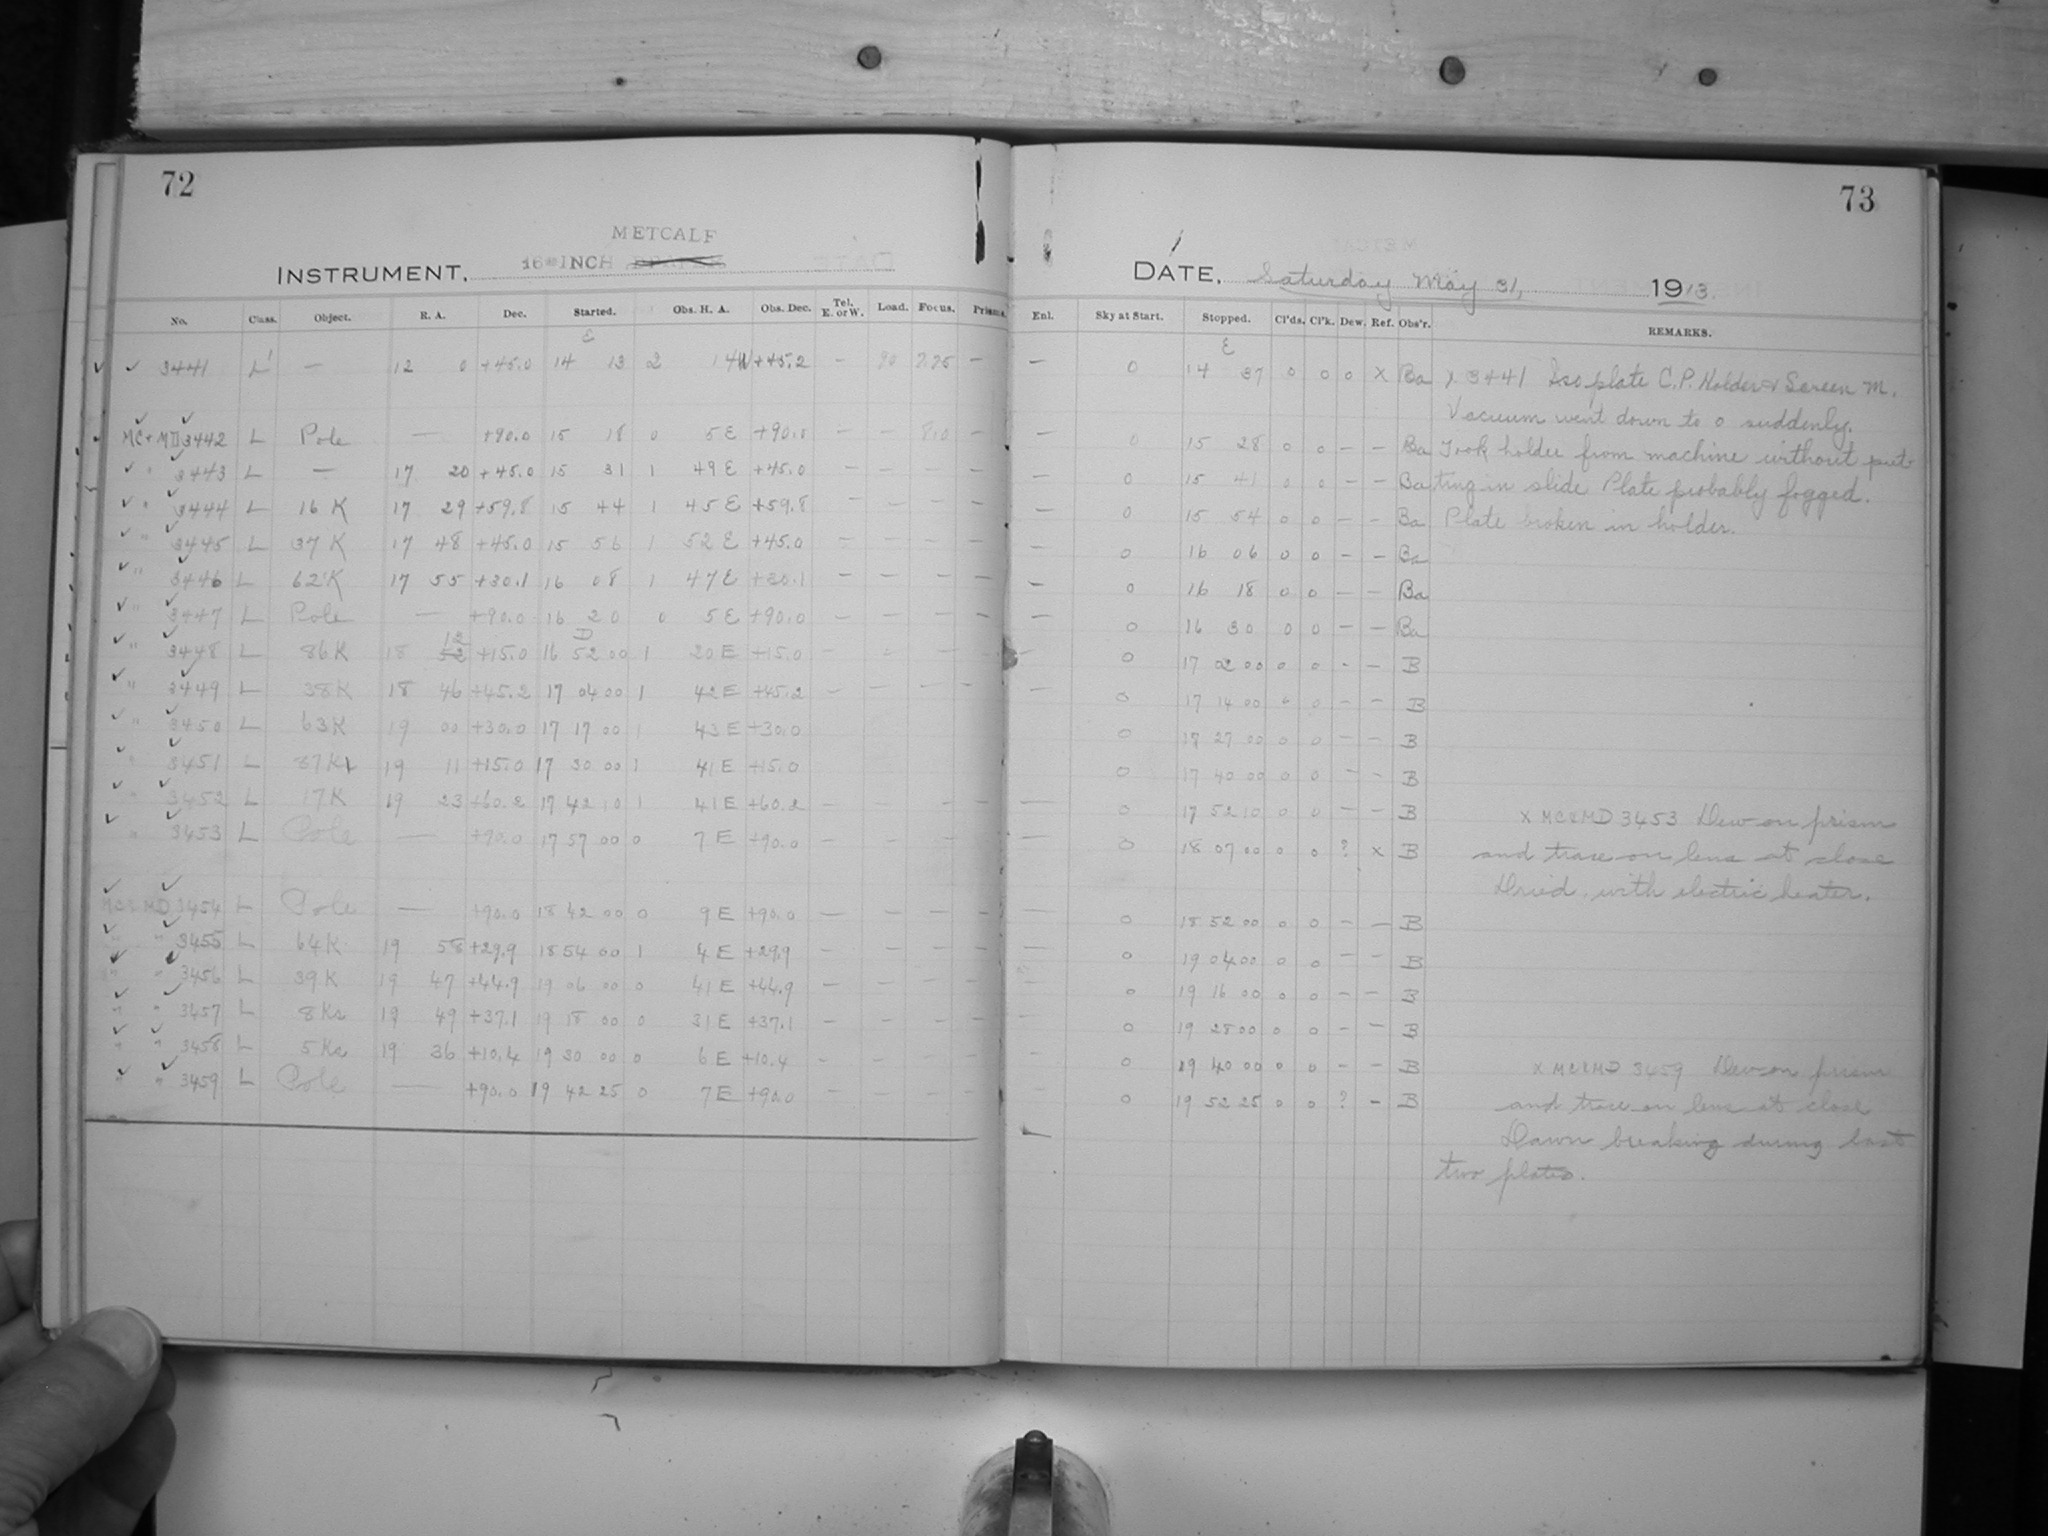 72
METCALF
INSTRUMENT, 16-INCH
No. Class. Object. R. A. Dec. Started. Obs. H. A. Obs. Dec. Tel. E. or W. Load. Focus. Prism.
E
3441 L' — 12 0 +45.0 14 13 2 14W +45.2 — 90 7.95 —
MC+MD 3442 L Pole — +90.0 15 18 0 5E +90.0 — — 8.0 —
" 3443 L — 17 20 +45.0 15 31 1 49E +45.0 — — — —
" 3444 L 16 K 17 29 +59.8 15 44 1 45E +59.8 — — — —
" 3445 L 37 K 17 48 +45.0 15 56 1 52E +45.0 — — — —
" 3446 L 62 K 17 55 +30.1 16 08 1 47E +30.1 — — — —
" 3447 L Pole — +90.0 16 20 0 5E +90.0 — — — —
12 D
" 3448 L 86K 18 52 +15.0 16 52 00 1 20E +15.0 — — — —
" 3449 L 38K 18 46 +45.2 17 04 00 1 42E +45.2 — — — —
" 3450 L 63K 19 00 +30.0 17 17 00 1 43E +30.0
" 3451 L 87K 19 11 +15.0 17 30 00 1 41E +15.0
" 3452 L 17K 19 23 +60.2 17 42 10 1 41E +60.2 — — —
" 3453 L Pole — +90.0 17 57 00 0 7E +90.0 — — — —
MC & MD 3454 L Pole — +90.0 18 42 00 0 9E +90.0 — — — —
" " 3455 L 64K 19 58 +29.9 18 54 00 1 4E +29.9 — — — —
" " 3456 L 39K 19 47 +44.9 19 06 00 0 41E +44.9 — — — —
" " 3457 L 8Ks 19 49 +37.1 19 18 00 0 31E +37.1 — — — —
" " 3458 L 5Ks 19 36 +10.4 19 30 00 0 6E +10.4 — — — —
" " 3459 L Pole — +90.0 19 42 25 0 7E +90.0 — — — —
73
DATE, Saturday May 31, 1913.
Enl. Sky at Start. Stopped. Cl'ds. Cl'k. Dew. Ref. Obs'r. REMARKS.
E
— 0 14 37 0 0 0 X Ba x 3441 Iso plate C.P. Holder & Screen M.
Vacuum went down to 0 suddenly.
— 0 15 28 0 0 — — Ba Took holder from machine without put-
— 0 15 41 0 0 — — Ba ting in slide Plate probably fogged.
— 0 15 54 0 0 — — Ba Plate broken in holder.
— 0 16 06 0 0 — — Ba
— 0 16 18 0 0 — — Ba
— 0 16 30 0 0 — — Ba
— 0 17 02 00 0 0 — — B
— 0 17 14 00 0 0 — — B
0 17 27 00 0 0 — — B
0 17 40 00 0 0 — — B
— 0 17 52 10 0 0 — — B X MC&MD 3453 Dew on prism
— 0 18 07 00 0 0 ? X B and trace on lens at close
Dried, with electric heater.
— 0 18 52 00 0 0 — — B
— 0 19 04 00 0 0 — — B
— 0 19 16 00 0 0 — — B
— 0 19 28 00 0 0 — — B
— 0 19 40 00 0 0 — — B X MC&MD 3459 Dew on prism
— 0 19 52 25 0 0 ? — B and trace on lens at close
Dawn breaking during last
two plates.